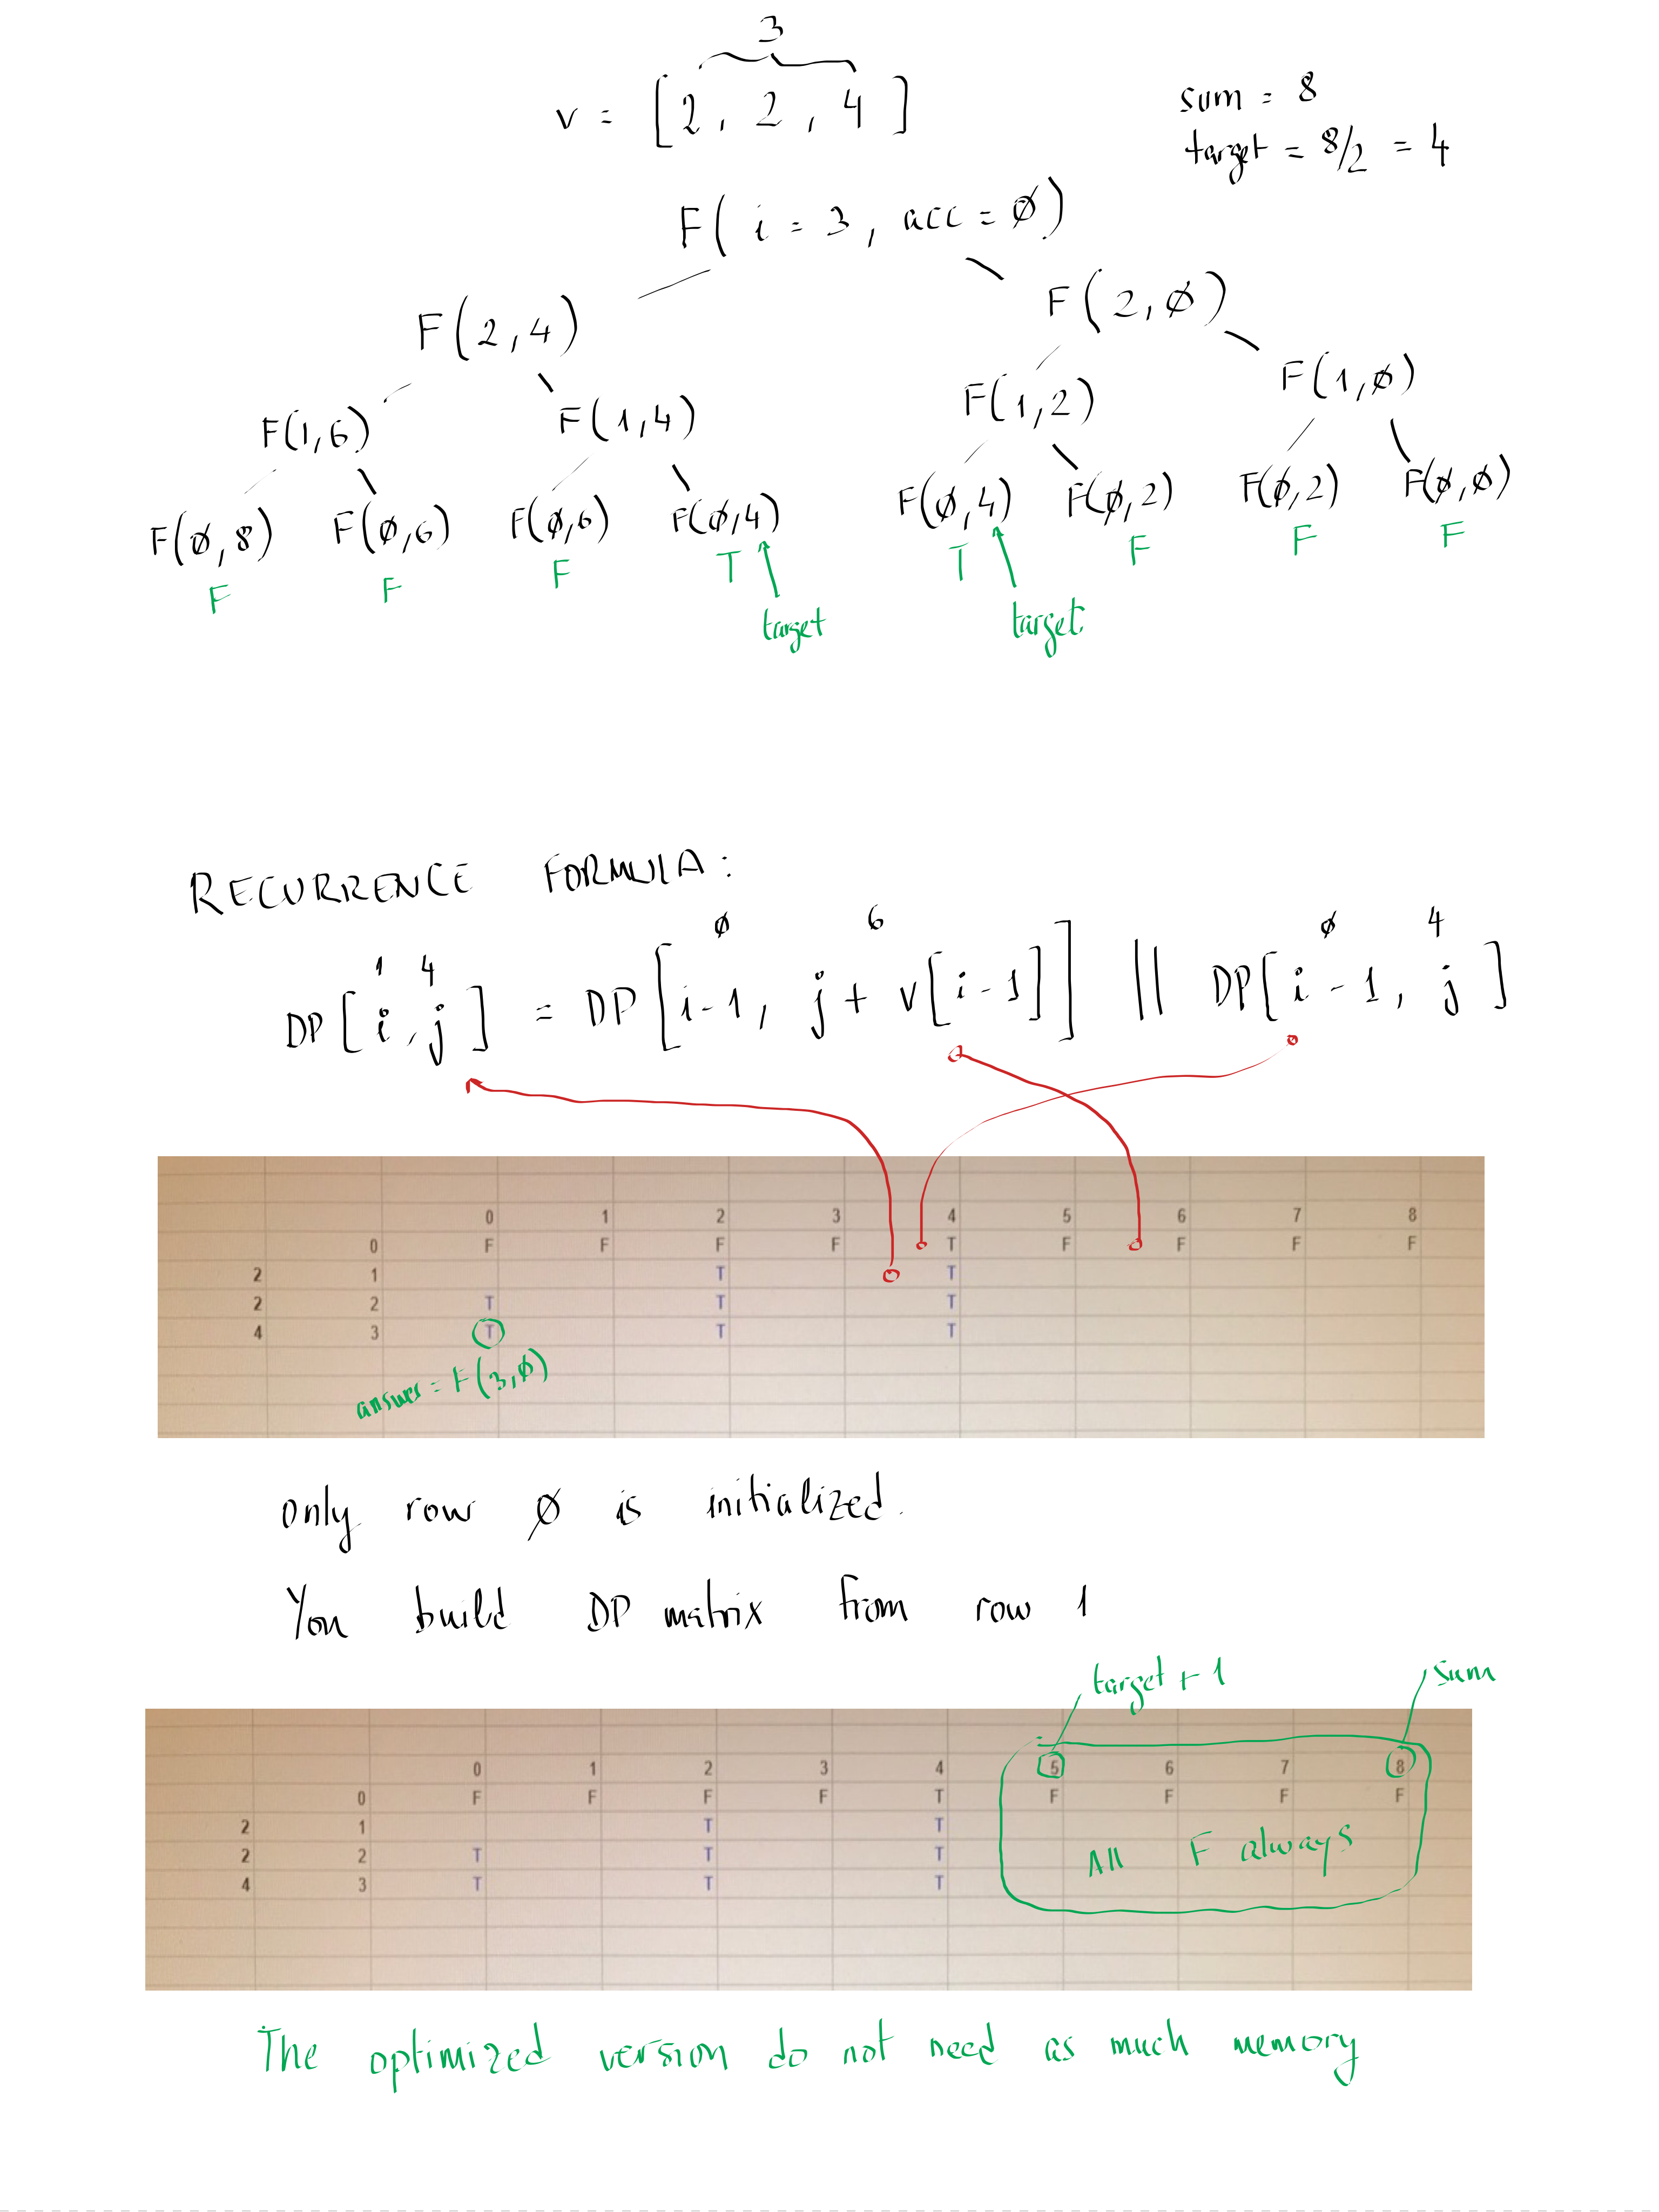 3
v = [ 2 , 2 , 4 ]
sum = 8
target = 8/2 = 4
F( i = 3 , acc = ∅ )
F(2,4) F(2,∅)
F(1,6) F(1,4) F(1,2) F(1,∅)
F(∅,8) F(∅,6) F(∅,6) F(∅,4) F(∅,4) F(∅,2) F(∅,2) F(∅,∅)
F F F T T F F F
target target
RECURRENCE FORMULA :
1 4 ∅ 6 ∅ 4
DP [ i , j ] = DP [ i-1 , j + v[i-1] ] || DP[ i-1 , j ]
0 1 2 3 4 5 6 7 8
0 F F F F T F F F F
2 1 T T
2 2 T T T
4 3 T T T
answer = F(3,∅)
only row ∅ is initialized.
You build DP matrix from row 1
target + 1 sum
0 1 2 3 4 5 6 7 8
0 F F F F T F F F F
2 1 T T
2 2 T T T
4 3 T T T
All F always
The optimized version do not need as much memory